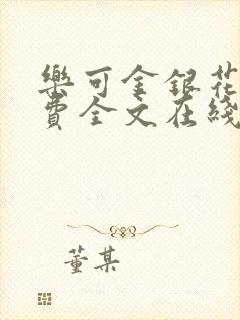 樂可金銀花
費全文在綫
董某